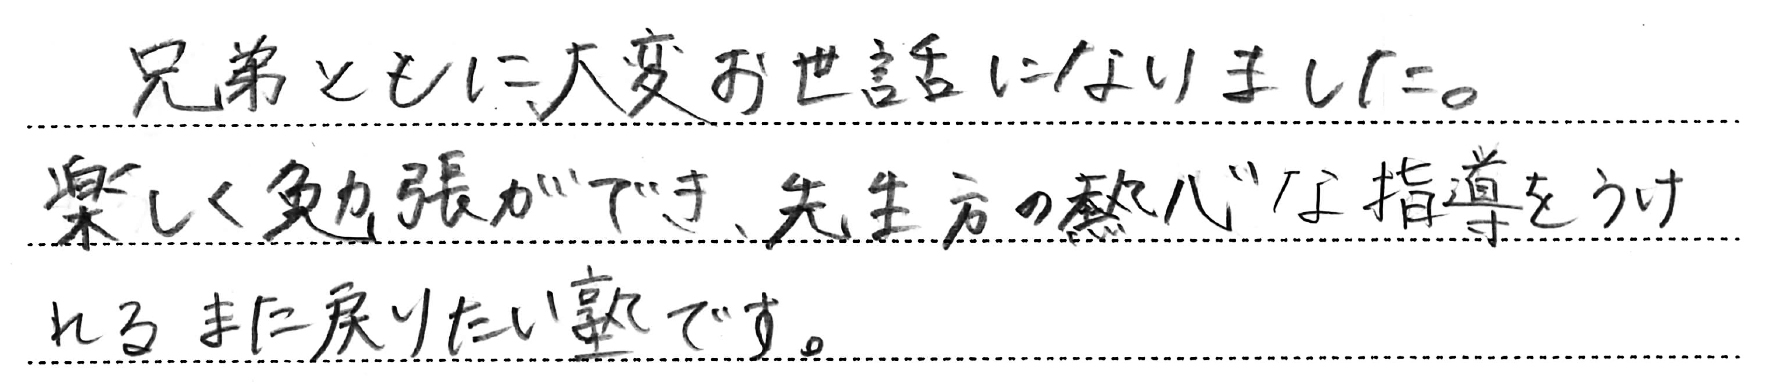 兄弟ともに大変お世話になりました。
楽しく勉張ができ、先生方の熱心な指導をうけ
れるまた戻りたい塾です。